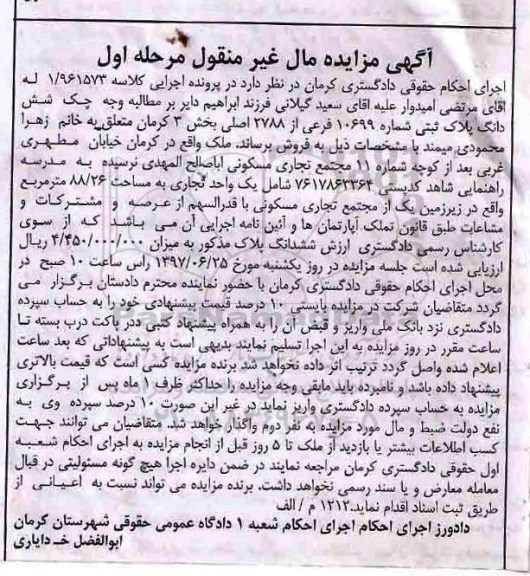 آگهی مزایده مال غیر منقول مرحله اول
اجرای احکام حقوقی دادگستری کرمان در نظر دارد در پرونده اجرایی کلاسه ۱/۹۶۱۵۷۳ له
آقای مرتضی امیدوار علیه اقای سعید گیلانی فرزند ابراهیم دایر بر مطالبه وجه چک شش
دانگ پلاک ثبتی شماره ۱۰۶۹۹ فرعی از ۲۷۸۸ اصلی بخش ۳ کرمان متعلق به خانم زهرا
محمودی میمند با مشخصات ذیل به فروش برساند. ملک واقع در کرمان خیابان مطهری
غربی بعد از کوچه شماره ۱۱ مجتمع تجاری مسکونی اباصالح المهدی نرسیده به مدرسه
راهنمایی شاهد کدپستی ۷۶۱۷۸۶۳۳۶۴ شامل یک واحد تجاری به مساحت ۸۸/۲۶ مترمربع
واقع در زیرزمین یک از مجتمع تجاری مسکونی با قدرالسهم از عرصه و مشترکات و
مشاعات طبق قانون تملک آپارتمان ها و آئین نامه اجرایی آن می باشد که از سوی
کارشناس رسمی دادگستری ارزش ششدانگ پلاک مذکور به میزان ۴/۴۵۰/۰۰۰/۰۰۰ ریال
ارزیابی شده است جلسه مزایده در روز یکشنبه مورخ ۱۳۹۷/۰۶/۲۵ راس ساعت ۱۰ صبح در
محل اجرای احکام حقوقی دادگستری کرمان با حضور نماینده محترم دادستان برگزار می
گردد متقاضیان شرکت در مزایده بایستی ۱۰ درصد قیمت پیشنهادی خود را به حساب سپرده
دادگستری نزد بانک ملی واریز و قبض آن را به همراه پیشنهاد کتبی در پاکت درب بسته تا
ساعت مقرر در روز مزایده به این اجرا تسلیم نمایند بدیهی است به پیشنهاداتی که بعد ساعت
اعلام شده واصل گردد ترتیب اثر داده نخواهد شد برنده مزایده کسی است که قیمت بالاتری
پیشنهاد داده باشد و نامبرده باید مابقی وجه مزایده را حداکثر ظرف ۱ ماه پس از برگزاری
مزایده به حساب سپرده دادگستری واریز نماید در غیر این صورت ۱۰ درصد سپرده وی به
نفع دولت ضبط و مال مورد مزایده به نفر دوم واگذار خواهد شد. متقاضیان می توانند جهت
کسب اطلاعات بیشتر یا بازدید از ملک تا ۵ روز قبل از انجام مزایده به اجرای احکام شعبه
اول حقوقی دادگستری کرمان مراجعه نمایند در ضمن دایره اجرا هیچ گونه مسئولیتی در قبال
معامله معارض و یا سند رسمی نخواهد داشت. برنده مزایده می تواند نسبت به اعیانی از
طریق ثبت اسناد اقدام نماید.۱۲۱۲ م / الف
دادورز اجرای احکام اجرای احکام شعبه ۱ دادگاه عمومی حقوقی شهرستان کرمان
ابوالفضل خدایاری